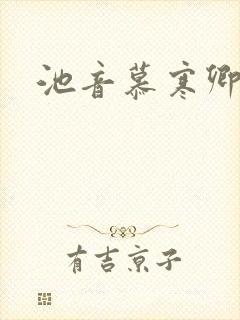 池音慕寒卿
有吉京子